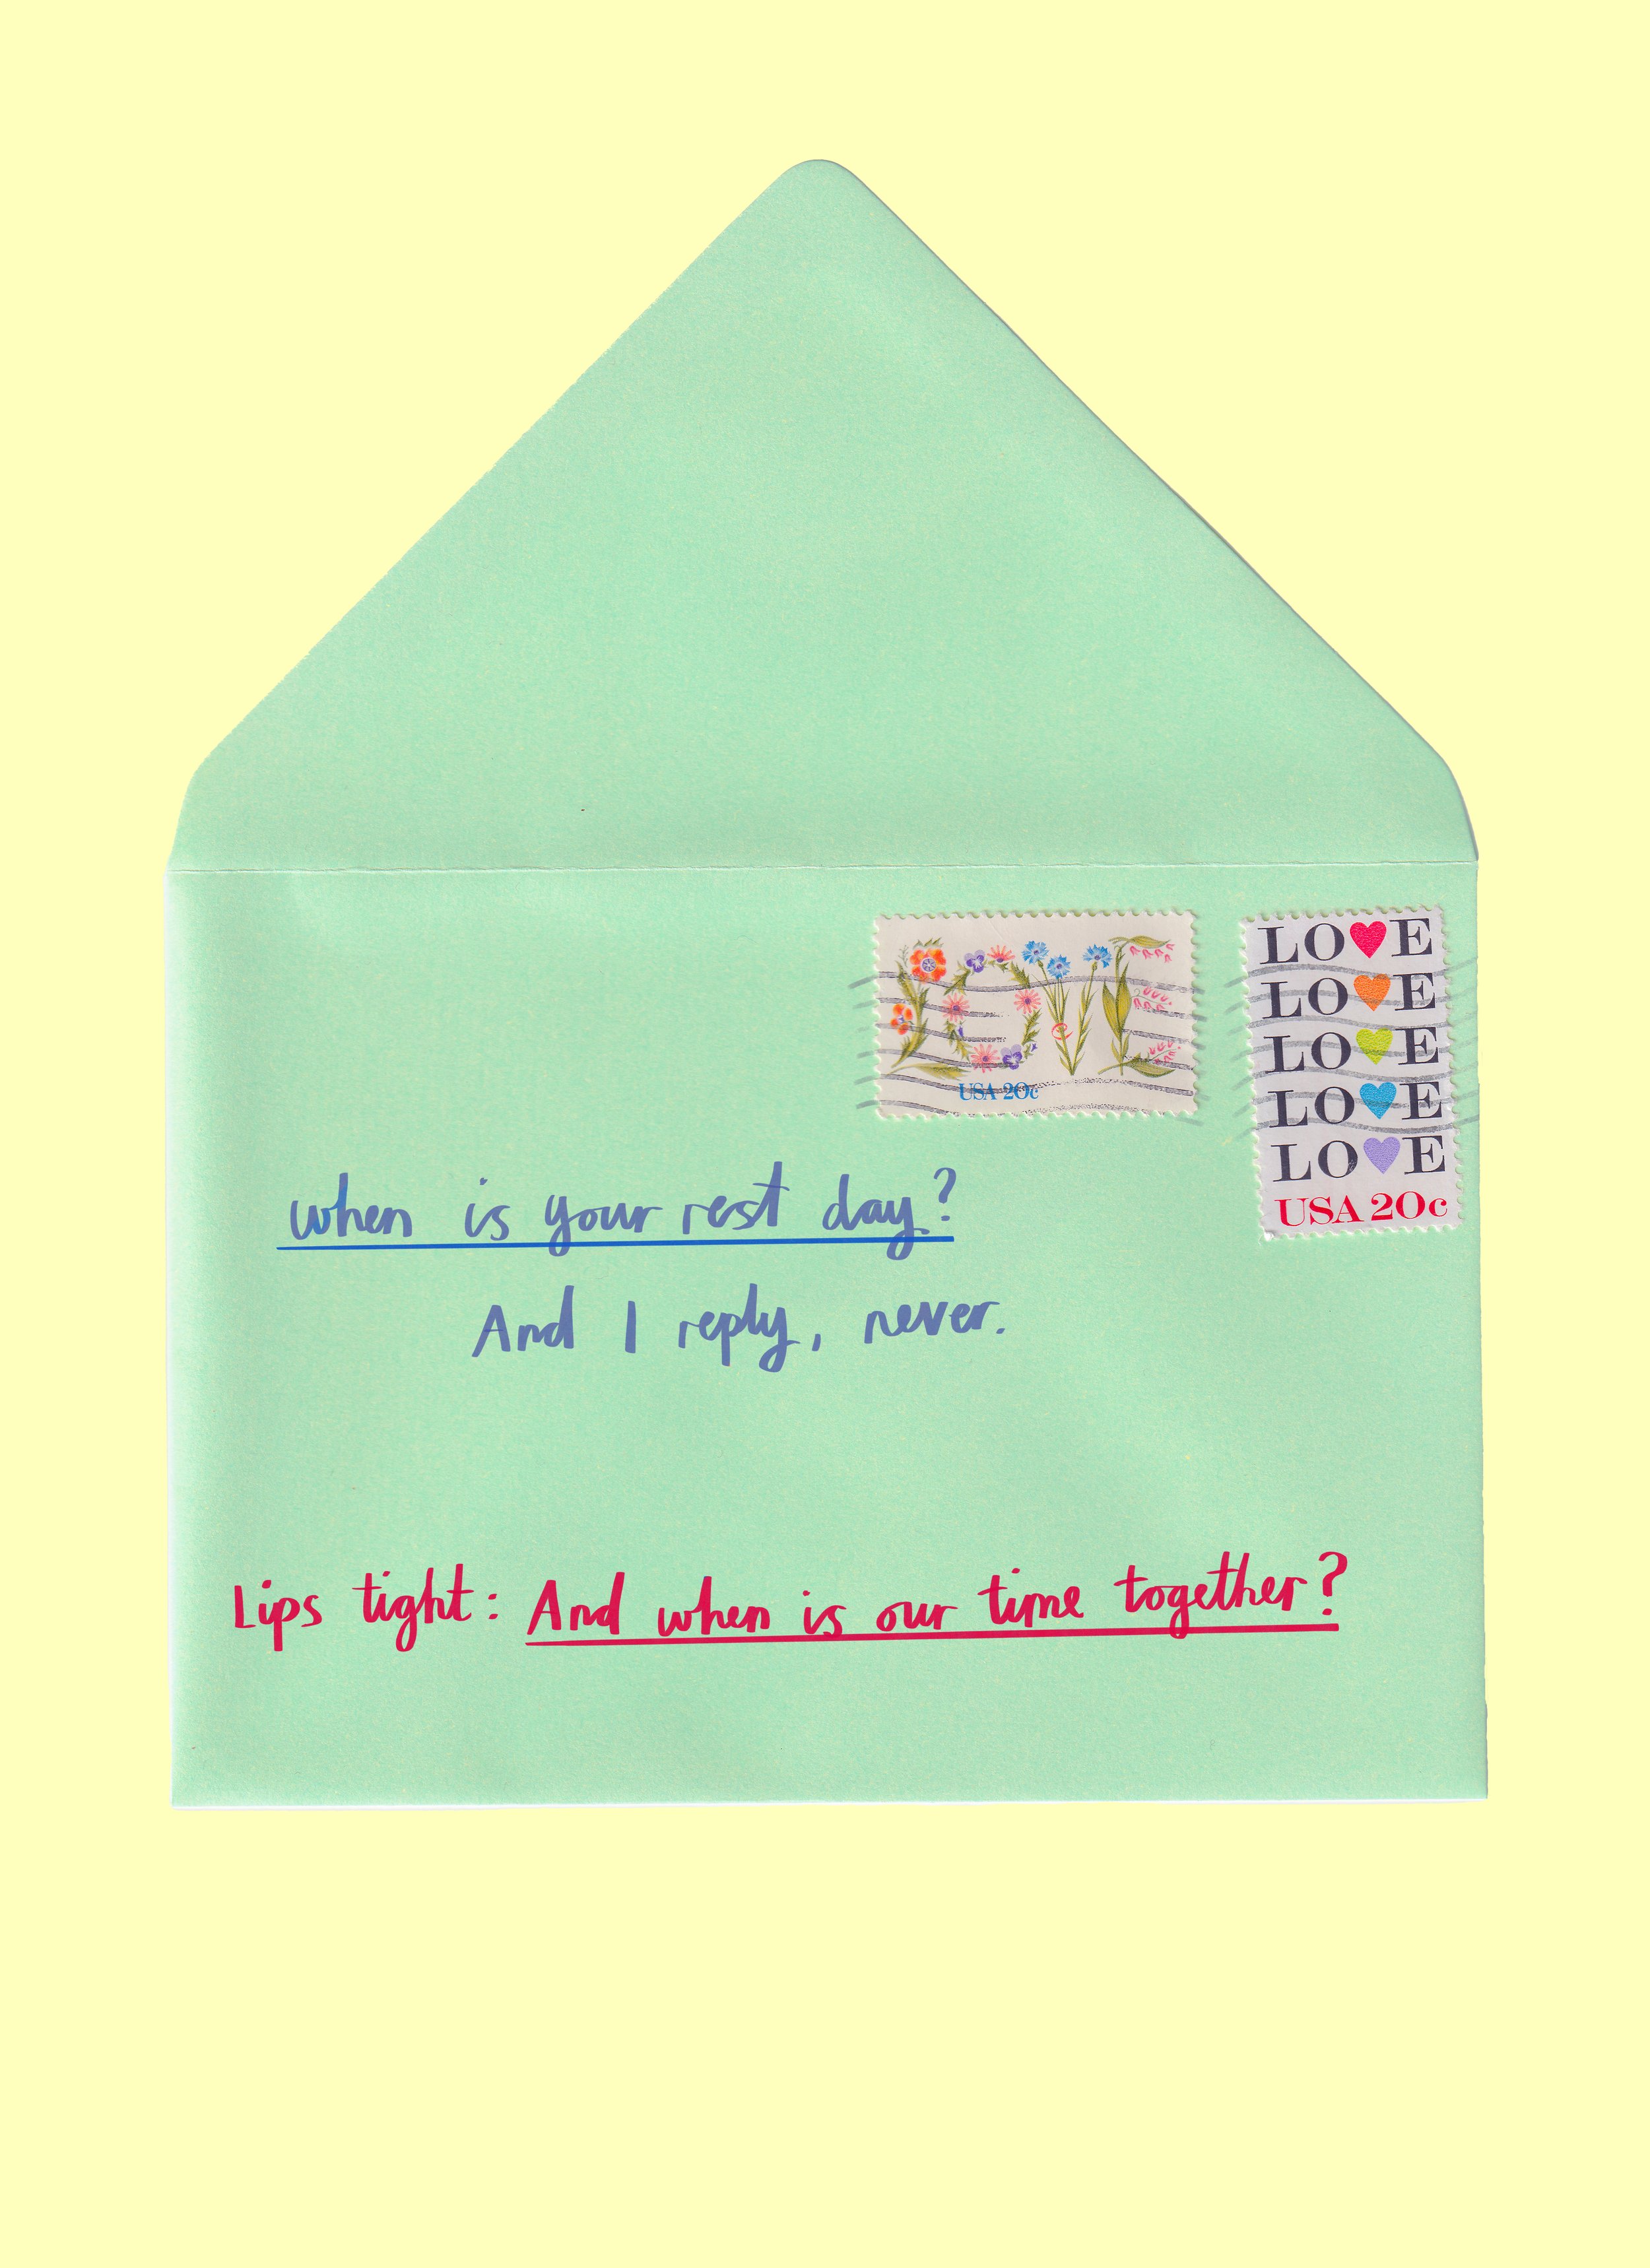 LOVE
USA 20c
LO♥E
LO♥E
LO♥E
LO♥E
LO♥E
USA 20c
when is your rest day?
And I reply, never.
Lips tight: And when is our time together?